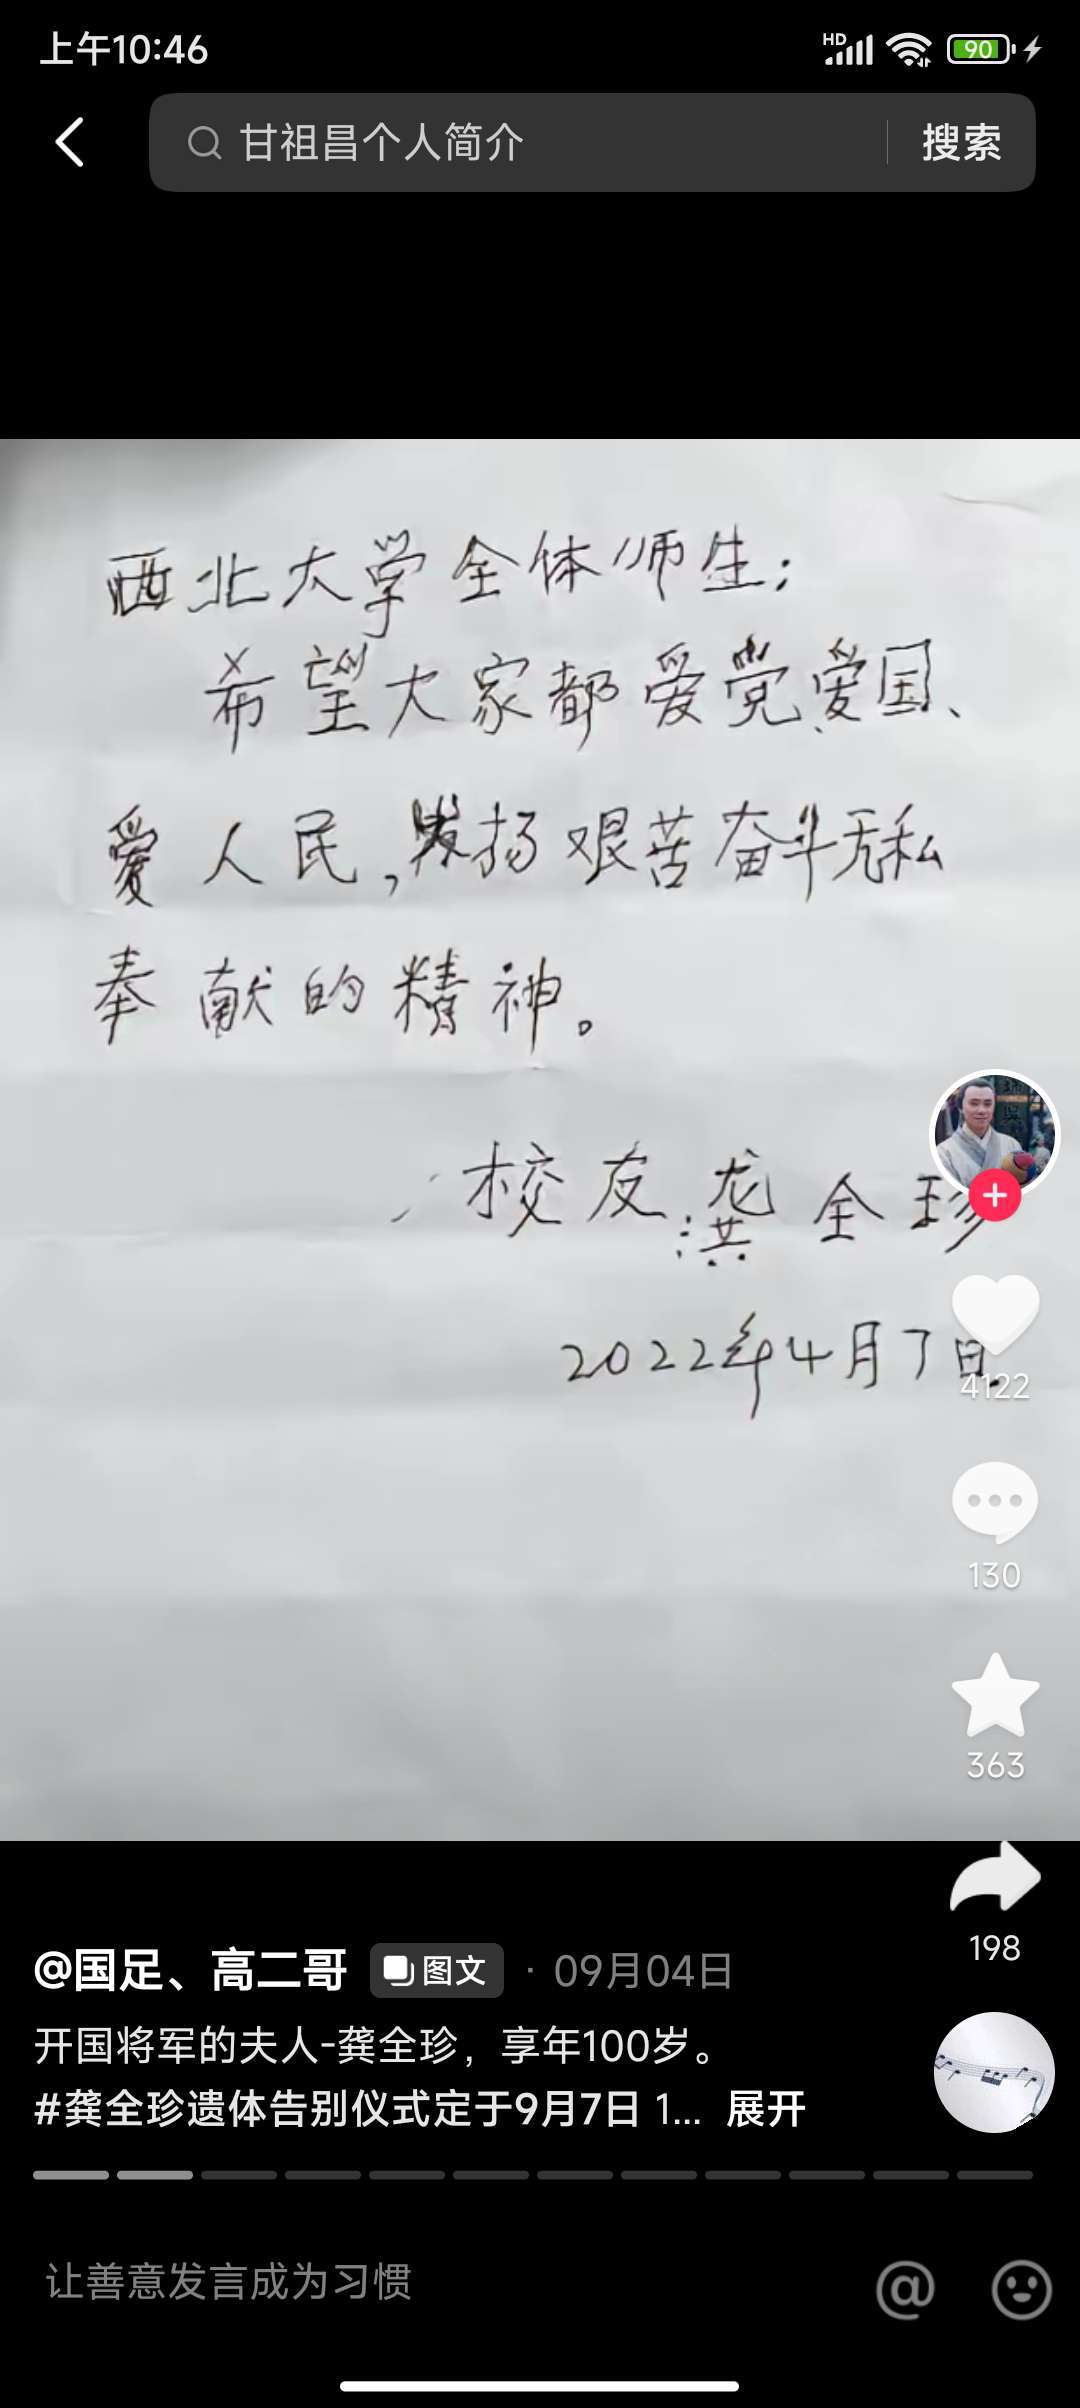 上午10:46
HD
90
甘祖昌个人简介
搜索
西北大学全体师生：
希望大家都爱党、爱国、
爱人民，发扬艰苦奋斗无私
奉献的精神。
校友龚全珍
2022年4月7日
4122
130
363
198
@国足、高二哥 图文 · 09月04日
开国将军的夫人-龚全珍，享年100岁。
#龚全珍遗体告别仪式定于9月7日 1... 展开
让善意发言成为习惯
@